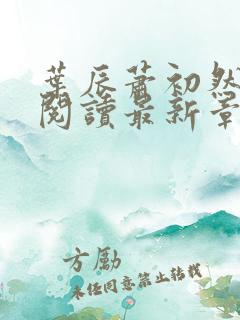 葉辰蕭初然
閱讀最新章
方勵
未經同意禁止轉載